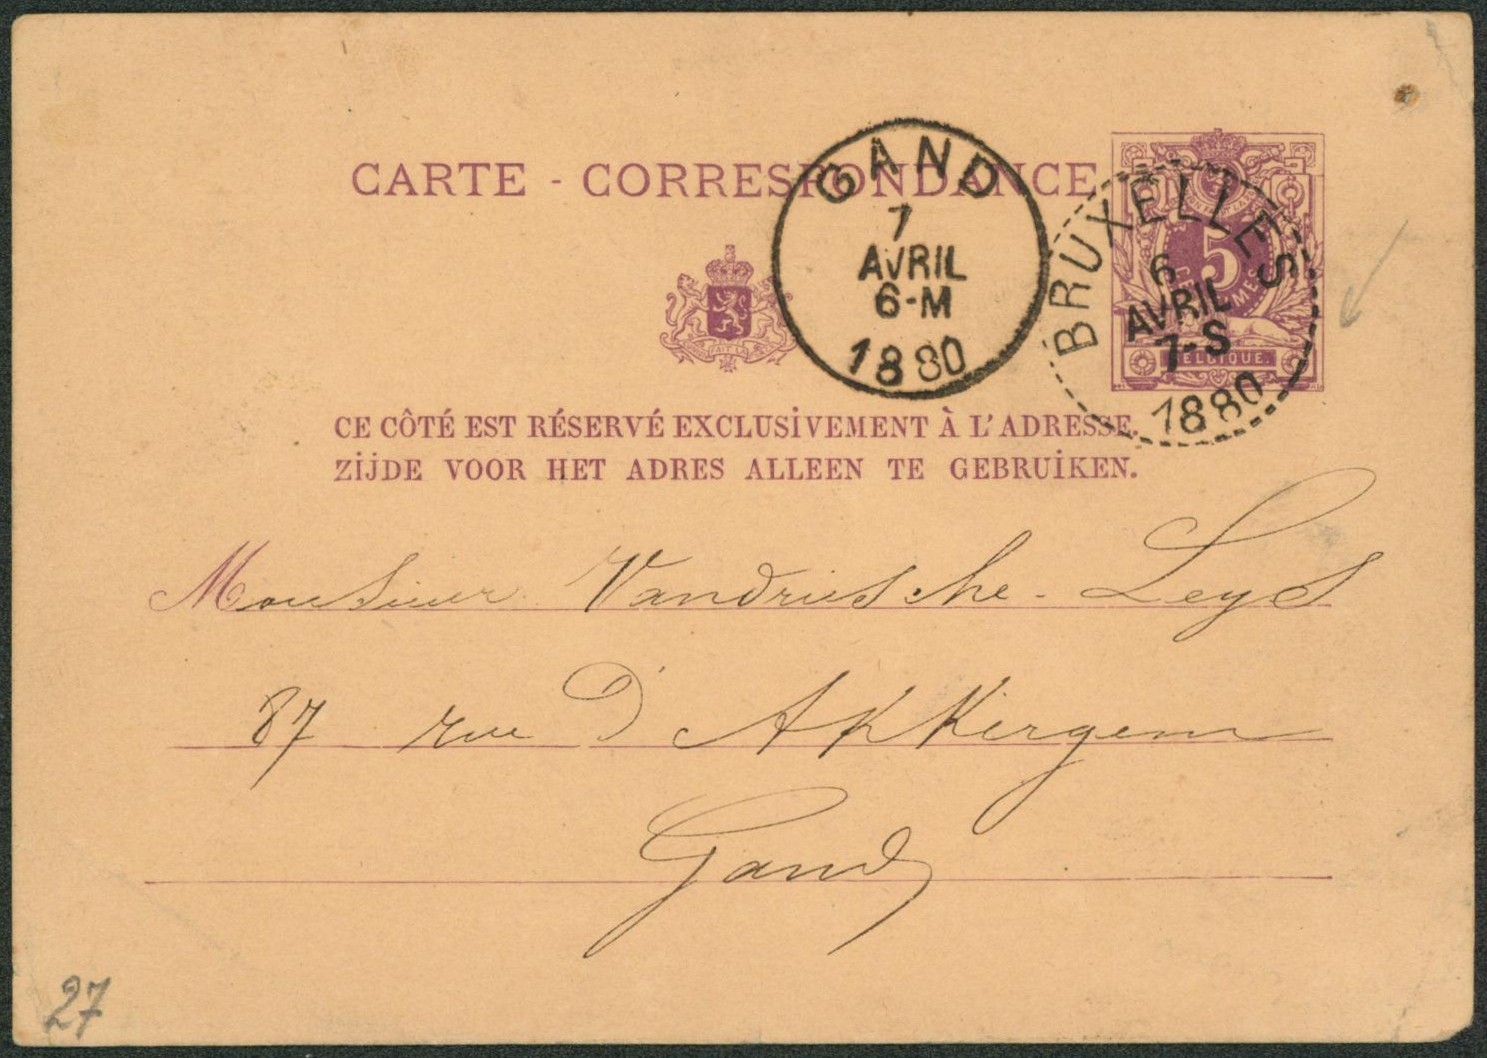 CARTE - CORRESPONDANCE
GAND
7
AVRIL
6-M
1880
BRUXELLES
6
AVRIL
7-S
1880
5
BELGIQUE.
CE CÔTÉ EST RÉSERVÉ EXCLUSIVEMENT À L'ADRESSE.
ZIJDE VOOR HET ADRES ALLEEN TE GEBRUIKEN.
Monsieur Vandriessche - Leys
87 rue D'Akkergem
Gand
27